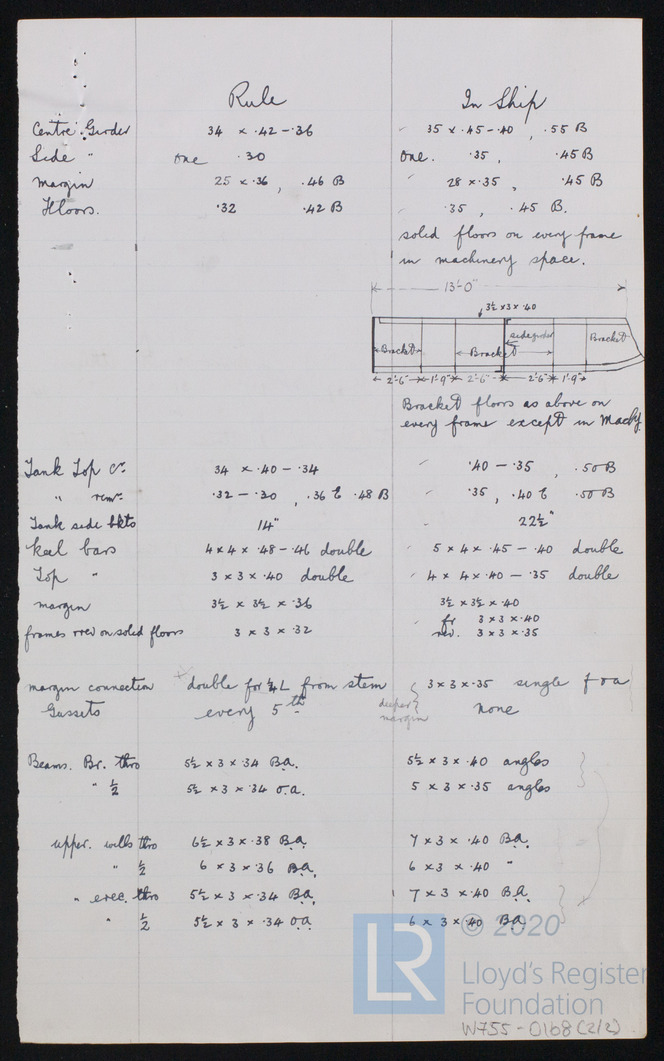 Rule In Ship
Centre Girder 34 × .42 – .36 35 × .45 – .40 , .55 B
Side " one .30 one. .35 , .45 B
margin 25 × .36 , .46 B 28 × .35 , .45 B
Floors. .32 .42 B .35 , .45 B.
solid floors on every frame
in machinery space.
13'-0"
3½ × 3 × .40
side girder
Bracket Bracket Bracket
2'-6" 1'-9" 2'-6" 2'-6" 1'-9"
Bracket floors as above on
every frame except in Machy
Tank Top Cr. 34 × .40 – .34 .40 – .35 , .50 B
" rem. .32 – .30 , .36 E .48 B .35 , .40 E .50 B
Tank side bkts 14" 22½"
keel bars 4 × 4 × .48 – .46 double 5 × 4 × .45 – .40 double
Top " 3 × 3 × .40 double 4 × 4 × .40 – .35 double
margin 3½ × 3½ × .36 3½ × 3½ × .40
fr 3 × 3 × .40
frames rrev on solid floors 3 × 3 × .32 rev. 3 × 3 × .35
margin connection double for ¼ L from stem 3 × 3 × .35 single f & a
Gussets every 5th deeper margin none
Beams. Br. thro 5½ × 3 × .34 B.a. 5½ × 3 × .40 angles
" ½ 5½ × 3 × .34 o.a. 5 × 3 × .35 angles
upper. wells thro 6½ × 3 × .38 B.a. 7 × 3 × .40 B.a.
" ½ 6 × 3 × .36 B.a. 6 × 3 × .40 "
" erec. thro 5½ × 3 × .34 B.a. 7 × 3 × .40 B.a.
" ½ 5½ × 3 × .34 o.a. 6 × 3 × .40 B.a.
LR © 2020
Lloyd's Register
Foundation
W755-0168 (2/2)